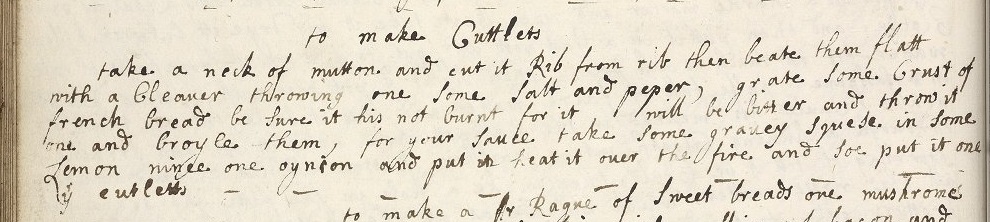 to make Cuttlets
take a neck of mutton and cut it Rib from rib then beate them flatt
with a Cleaver throwing one some salt and peper, grate some Crust of
french bread be sure it his not burnt for it will be bitter and throw it
one and broyle them, for your sauce take some gravey squese in some
Lemon mince one oynion and put it heat it over the fire and soe put it one
ye cutletts
to make a Rague of sweet breads one mushrome
bacon and